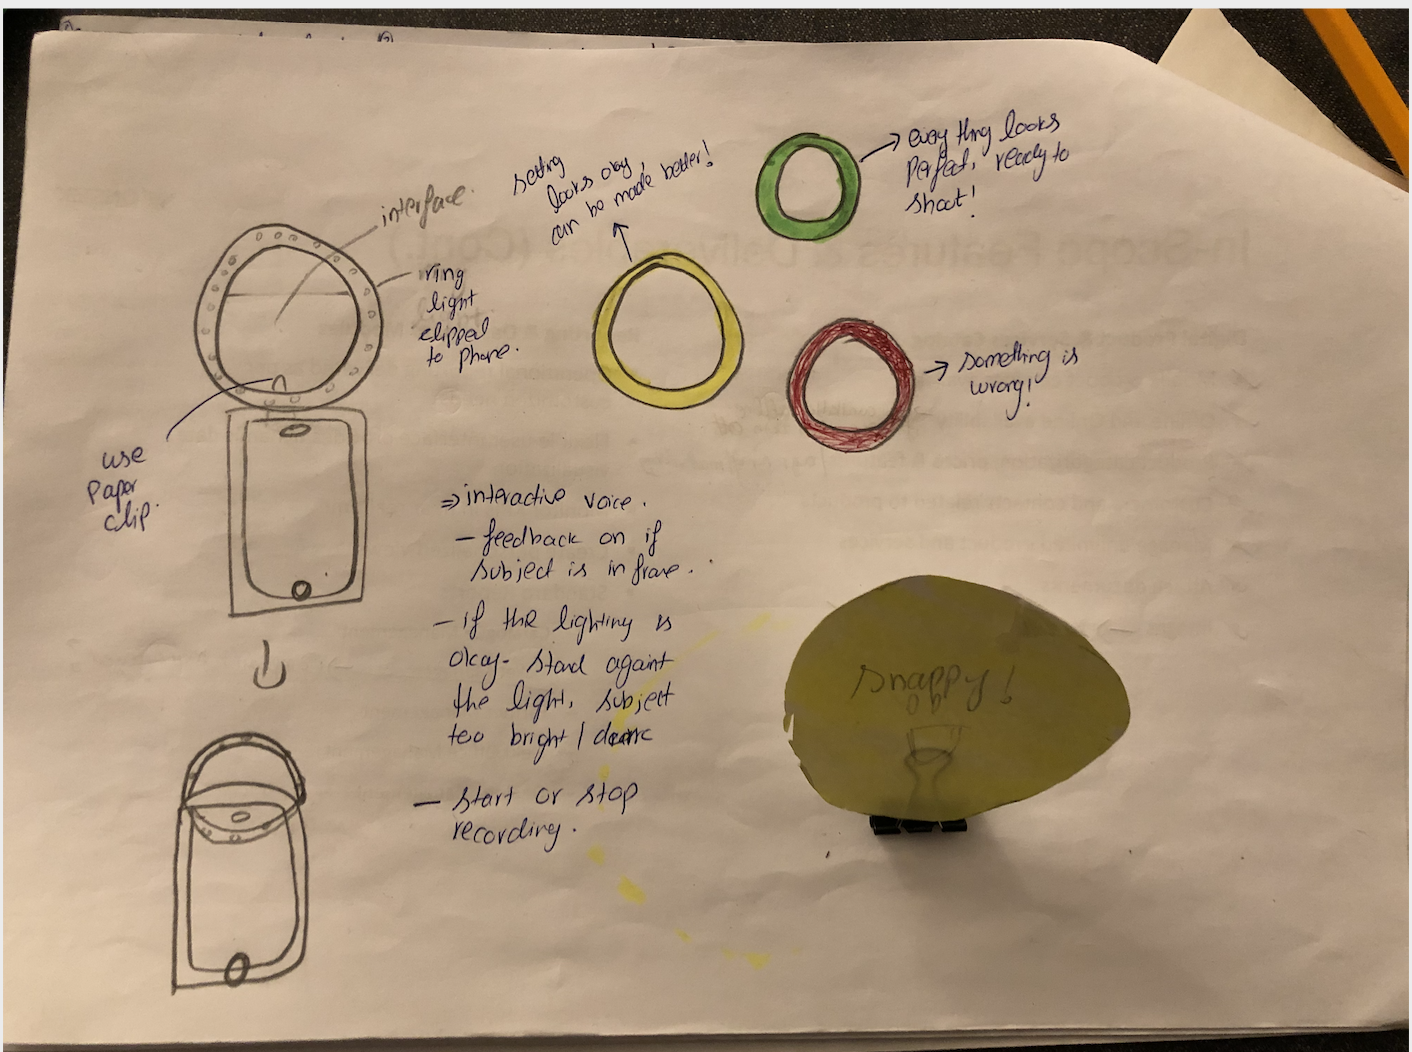 interface.
ring
light
clipped
to phone.
use
paper
clip.
setting
looks okay,
can be made better!
everything looks
perfect, ready to
shoot!
something is
wrong!
⇒ interactive voice.
- feedback on if
subject is in frame.
- if the lighting is
okay- stand against
the light, subject
too bright / dark
- start or stop
recording.
snappy!
In-Scope Features & Deliverables (Cont.)